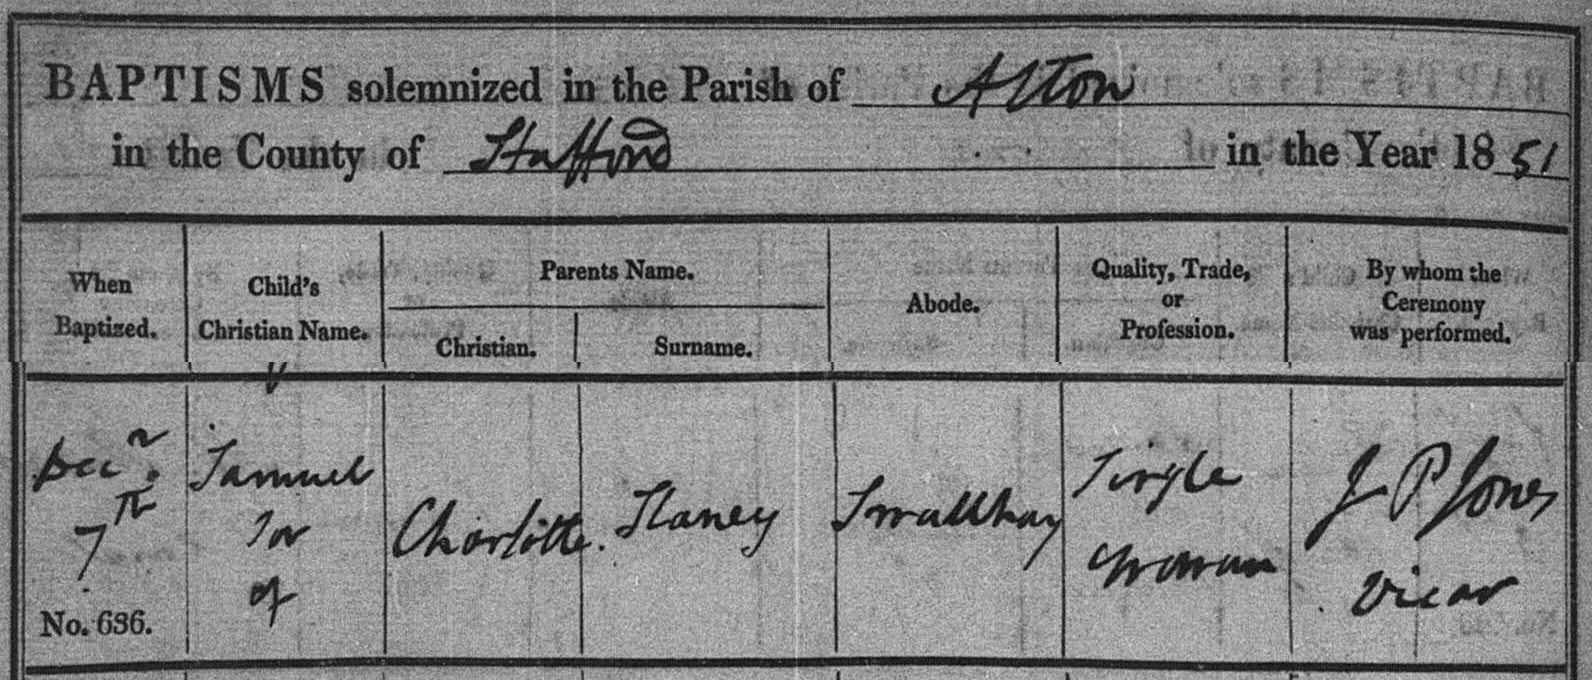 BAPTISMS solemnized in the Parish of Alton
in the County of Stafford in the Year 1851
When Baptized.
Child's Christian Name.
Parents Name.
Christian.
Surname.
Abode.
Quality, Trade, or Profession.
By whom the Ceremony was performed.
Decr. 7th
No. 636.
Samuel Son of
Charlotte
Slaney
Smallhay
Single Woman
J P Jones Vicar